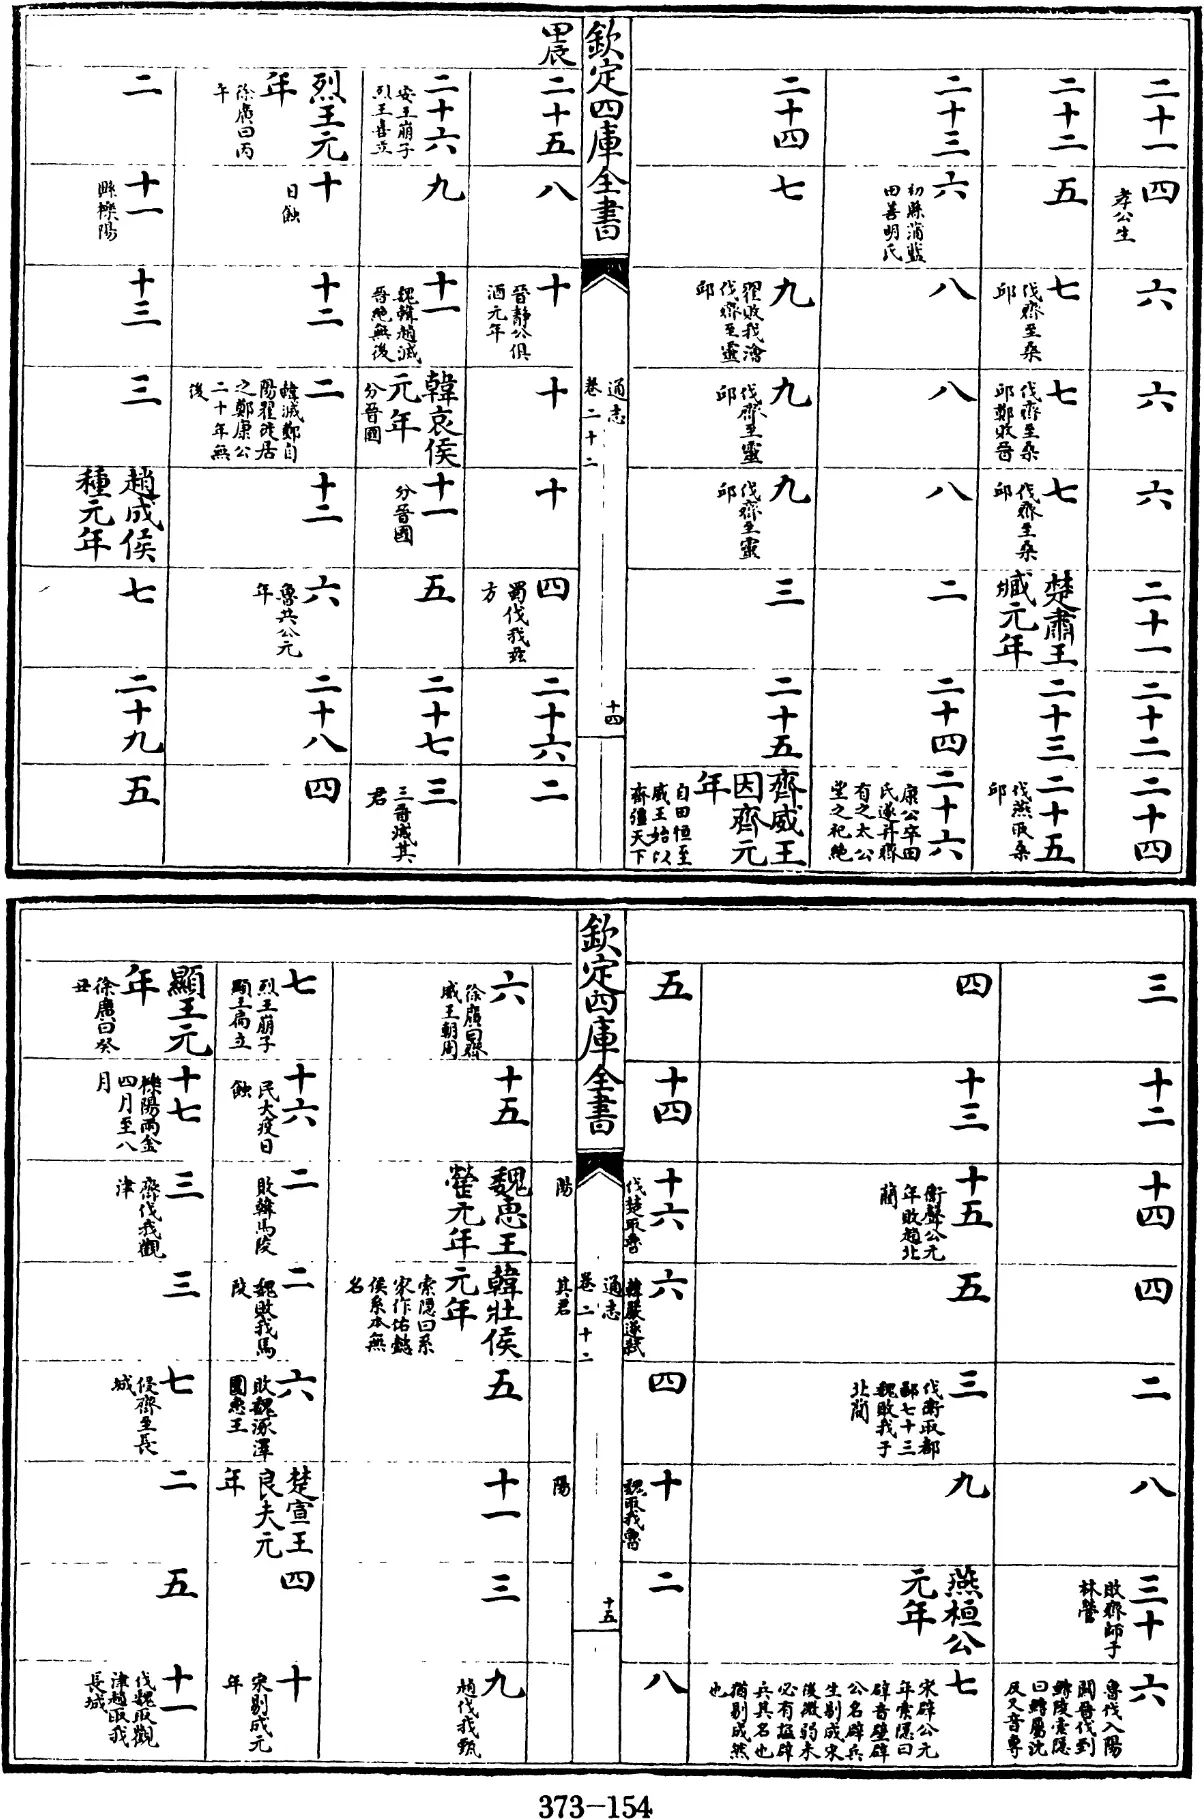 二十一
四
孝公生
六
六
六
二十一
二十二
二十四
二十二
五
七
伐齊至桑
邱
七
伐齊至桑
邱鄭敗晉
七
伐齊至桑
邱
楚肅王
臧元年
二十三
二十五
伐燕取桑
邱
二十三
六
初縣蒲藍
田善明氏
八
八
八
二
二十四
二十六
康公卒田
氏遂并齊
有之太公
望之祀絶
二十四
七
九
翟敗我澮
伐齊至靈
邱
九
伐齊至靈
邱
九
伐齊至靈
邱
三
二十五
齊威王
因齊元
年
自田恒至
威王始以
齊彊天下
欽定四庫全書
通志
卷二十二
十四
甲辰
二十五
八
十
晉靜公俱
酒元年
十
十
四
蜀伐我兹
方
二十六
二
二十六
安王崩子
烈王喜立
九
十一
魏韓趙滅
晉絶無後
韓哀侯
元年
分晉國
十一
分晉國
五
二十七
三
三晉滅其
君
烈王元
年
徐廣曰丙
午
十
日蝕
十二
二
韓滅鄭自
陽翟徙居
之鄭康公
二十年無
後
十二
六
魯共公元
年
二十八
四
二
十一
縣櫟陽
十三
三
趙成侯
種元年
七
二十九
五
三
十二
十四
四
二
八
三十
敗齊師于
林營
六
魯伐入陽
關晉伐到
鱄陵索隱
曰鱄屬沈
反又音專
四
十三
十五
衛聲公元
年敗趙北
藺
五
三
伐衛取都
鄙七十三
魏敗我于
北藺
九
燕桓公
元年
七
宋辟公元
年索隱曰
辟音壁辟
公名辟兵
生剔成宋
後微弱未
必有諡辟
兵其名也
猶剔成然
也
五
十四
十六
伐楚取魯
六
韓嚴遂弑
四
十
魏取我魯
二
八
欽定四庫全書
通志
卷二十二
十五
陽
其君
陽
六
徐廣曰齊
威王朝周
十五
魏惠王
罃元年
韓壯侯
元年
索隱曰系
家作懿
侯系本無
名
五
十一
三
九
趙伐我甄
七
烈王崩子
顯王扁立
十六
民大疫日
蝕
二
敗韓馬陵
二
魏敗我馬
陵
六
敗魏涿澤
圍惠王
楚宣王
良夫元
年
四
十
宋剔成元
年
顯王元
年
徐廣曰癸
丑
十七
櫟陽雨金
四月至八
月
三
齊伐我觀
津
三
七
侵齊至長
城
二
五
十一
伐魏取觀
津趙取我
長城
373-154